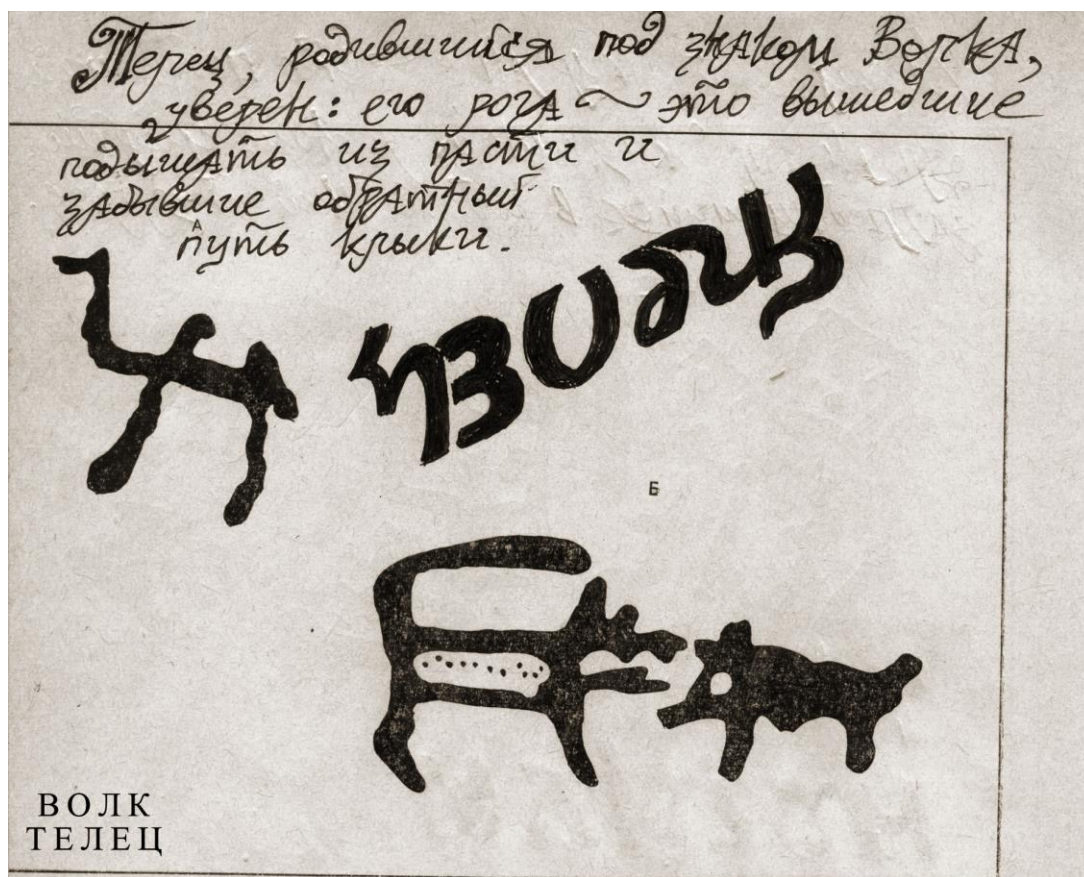 Телец, родившийся под знаком Волка,
уверен: его рога ~ это вышедшие
подышать из пасти и
забывшие обратный
путь клыки.
Б
ВОЛК
ТЕЛЕЦ